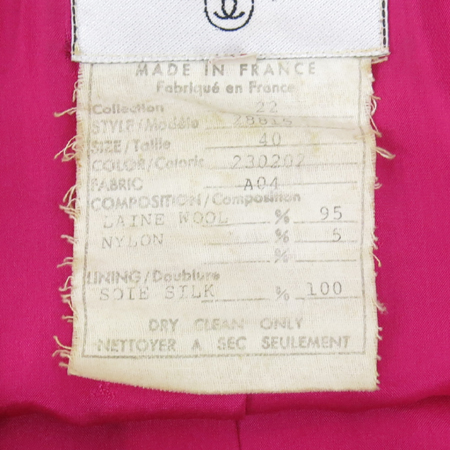 MADE IN FRANCE
Fabriqué en France
Collection 22
STYLE/Modèle
SIZE/Taille 40
COLOR/Coloris 230202
FABRIC A04
COMPOSITION/Composition
LAINE WOOL % 95
NYLON % 5
%
LINING/Doublure
SOIE SILK % 100
DRY CLEAN ONLY
NETTOYER A SEC SEULEMENT